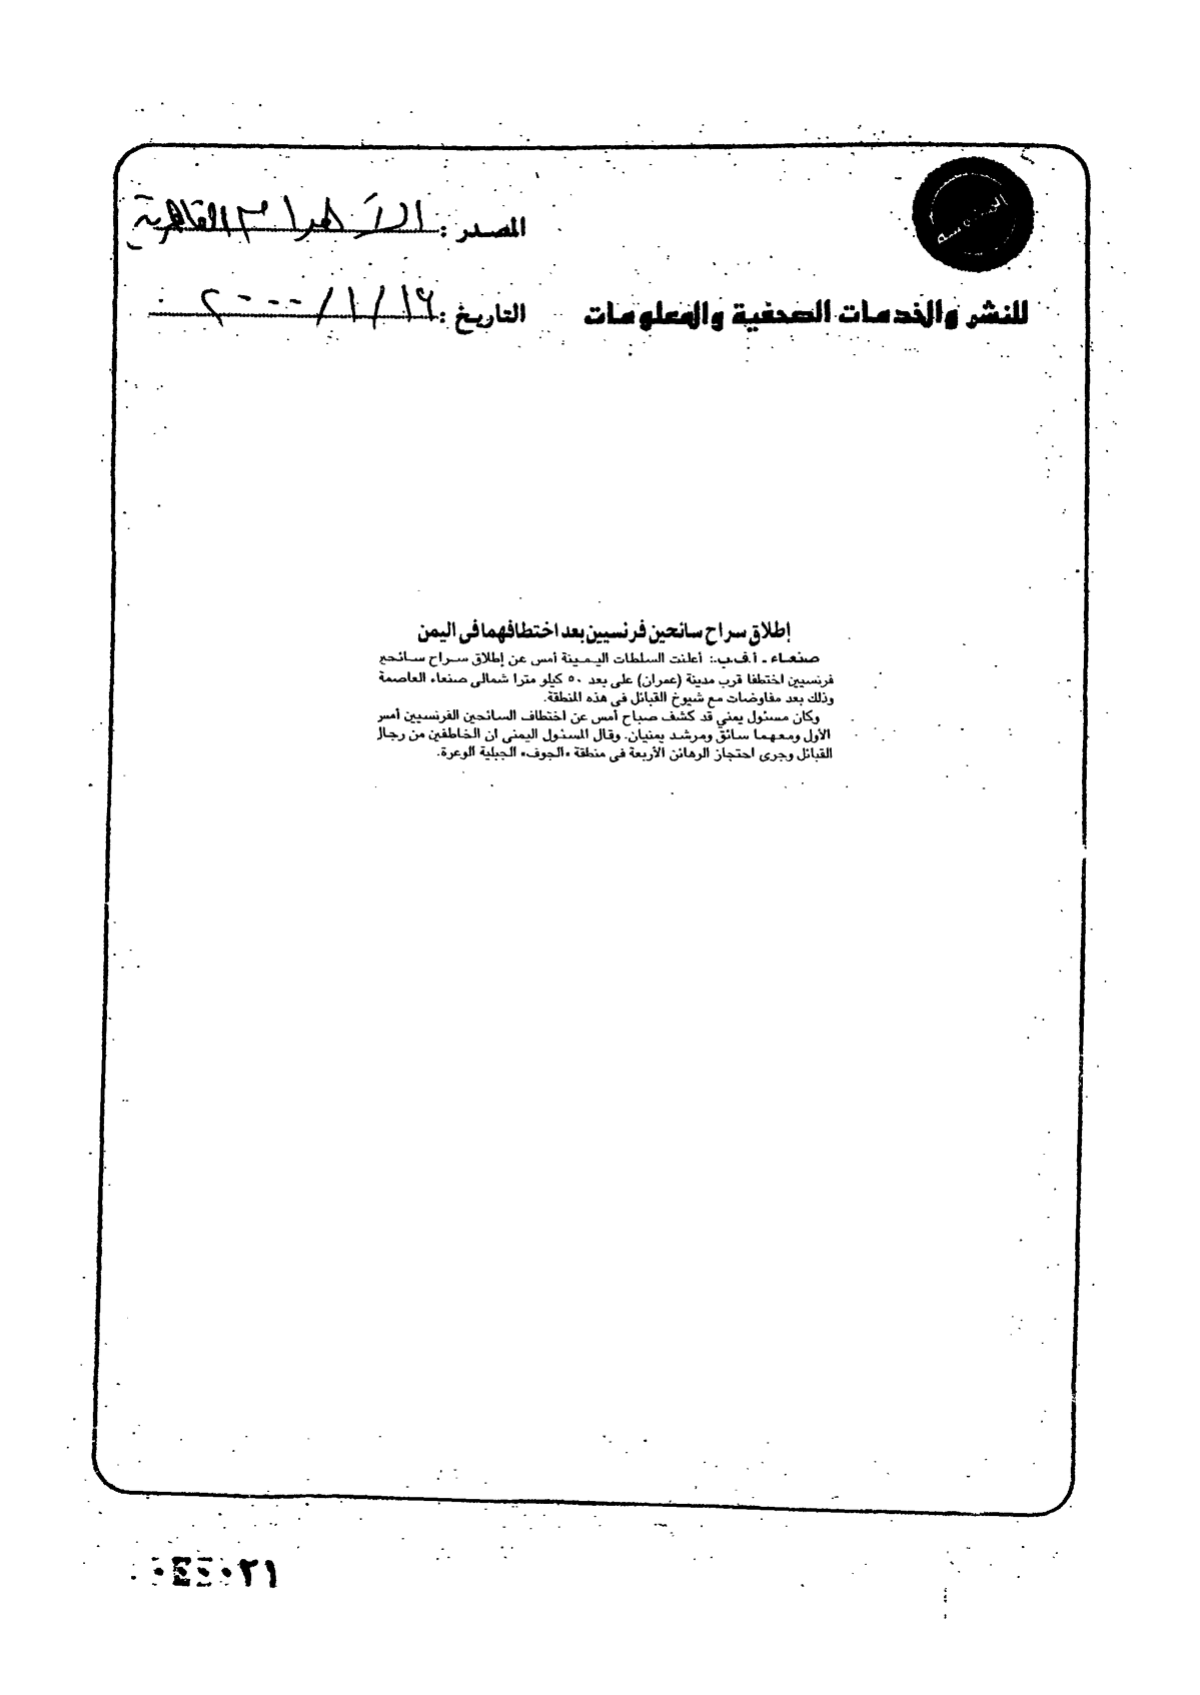 المصدر : الأهرام القاهرية
للنشر والخدمات الصحفية والمعلومات
التاريخ : ١٦/ ١ / ٢٠٠٠
إطلاق سراح سائحين فرنسيين بعد اختطافهما فى اليمن
صنعاء ـ أ.ف.ب.: أعلنت السلطات اليمينة أمس عن إطلاق سراح سائحع
فرنسيين اختطفا قرب مدينة (عمران) على بعد ٥٠ كيلو مترا شمالى صنعاء العاصمة
وذلك بعد مفاوضات مع شيوخ القبائل فى هذه المنطقة.
وكان مسئول يمني قد كشف صباح أمس عن اختطاف السائحين الفرنسيين أمس
الأول ومعهما سائق ومرشد يمنيان. وقال المسئول اليمنى ان الخاطفين من رجال
القبائل وجرى احتجاز الرهائن الأربعة فى منطقة «الجوف» الجبلية الوعرة.